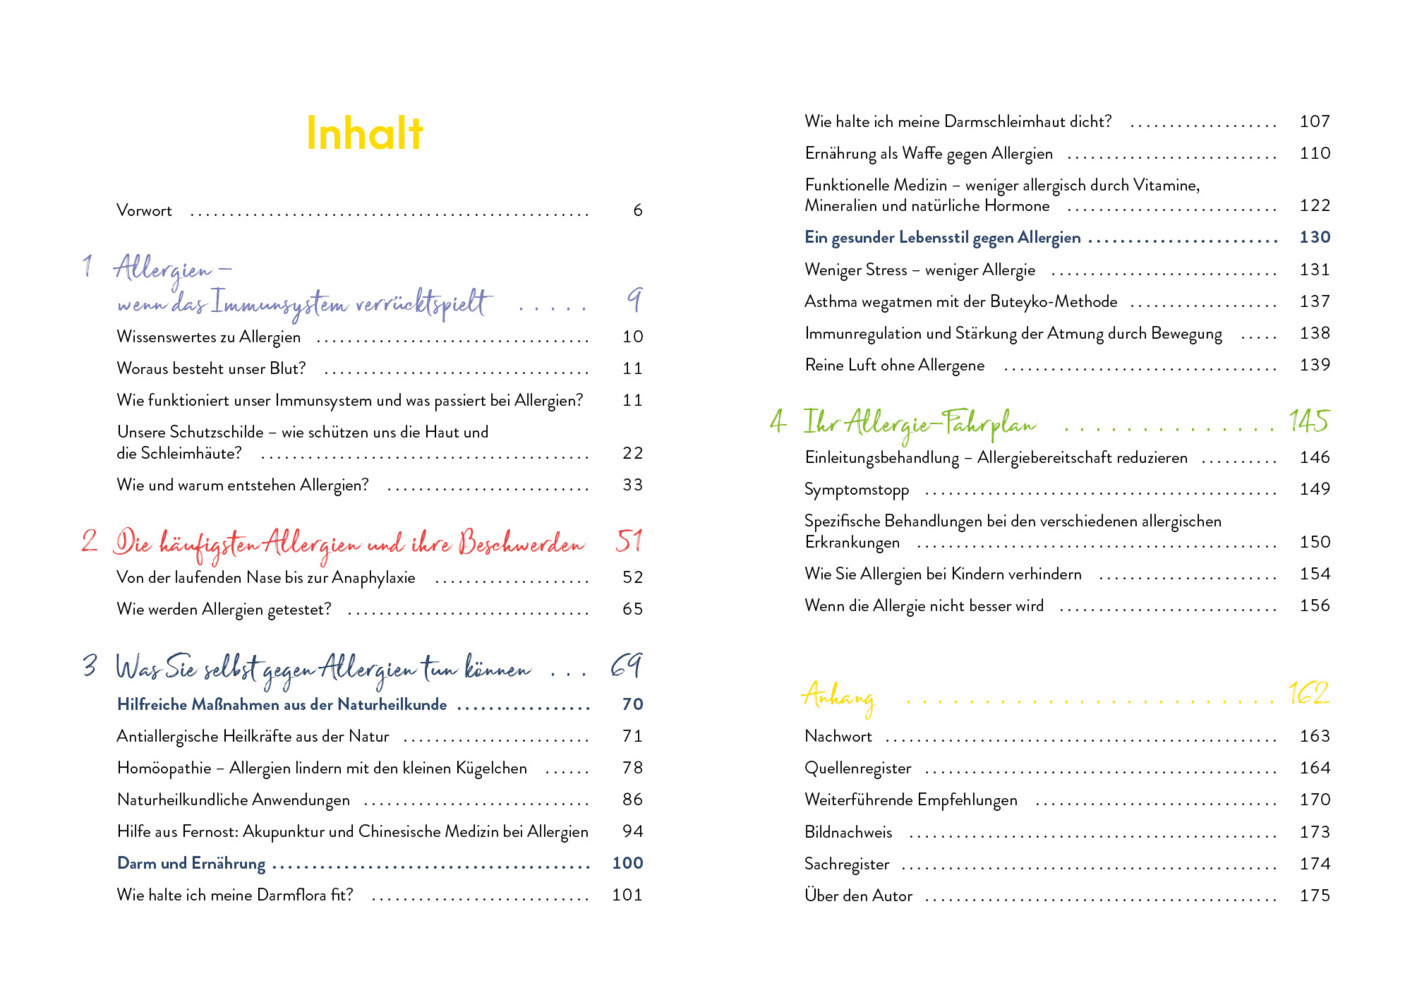 Inhalt
Vorwort ................................................... 6
1 Allergien –
wenn das Immunsystem verrücktspielt ..... 9
Wissenswertes zu Allergien ................................... 10
Woraus besteht unser Blut? .................................. 11
Wie funktioniert unser Immunsystem und was passiert bei Allergien? 11
Unsere Schutzschilde – wie schützen uns die Haut und
die Schleimhäute? .......................................... 22
Wie und warum entstehen Allergien? .......................... 33
2 Die häufigsten Allergien und ihre Beschwerden 51
Von der laufenden Nase bis zur Anaphylaxie .................... 52
Wie werden Allergien getestet? ............................... 65
3 Was Sie selbst gegen Allergien tun können ... 69
Hilfreiche Maßnahmen aus der Naturheilkunde ................. 70
Antiallergische Heilkräfte aus der Natur ........................ 71
Homöopathie – Allergien lindern mit den kleinen Kügelchen ...... 78
Naturheilkundliche Anwendungen ............................. 86
Hilfe aus Fernost: Akupunktur und Chinesische Medizin bei Allergien 94
Darm und Ernährung ........................................ 100
Wie halte ich meine Darmflora fit? ............................ 101
Wie halte ich meine Darmschleimhaut dicht? ................... 107
Ernährung als Waffe gegen Allergien ........................... 110
Funktionelle Medizin – weniger allergisch durch Vitamine,
Mineralien und natürliche Hormone ........................... 122
Ein gesunder Lebensstil gegen Allergien ........................ 130
Weniger Stress – weniger Allergie ............................. 131
Asthma wegatmen mit der Buteyko-Methode ................... 137
Immunregulation und Stärkung der Atmung durch Bewegung ..... 138
Reine Luft ohne Allergene ................................... 139
4 Ihr Allergie-Fahrplan .............. 145
Einleitungsbehandlung – Allergiebereitschaft reduzieren .......... 146
Symptomstopp ............................................. 149
Spezifische Behandlungen bei den verschiedenen allergischen
Erkrankungen .............................................. 150
Wie Sie Allergien bei Kindern verhindern ....................... 154
Wenn die Allergie nicht besser wird ............................ 156
Anhang ........................ 162
Nachwort .................................................. 163
Quellenregister ............................................. 164
Weiterführende Empfehlungen ............................... 170
Bildnachweis ............................................... 173
Sachregister ................................................ 174
Über den Autor ............................................. 175